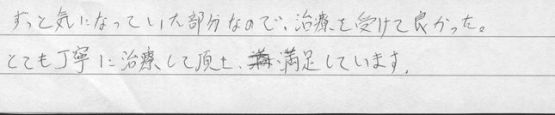 ずっと気になっていた部分なので、治療を受けて良かった。
とても丁寧に治療して頂き、満足しています。